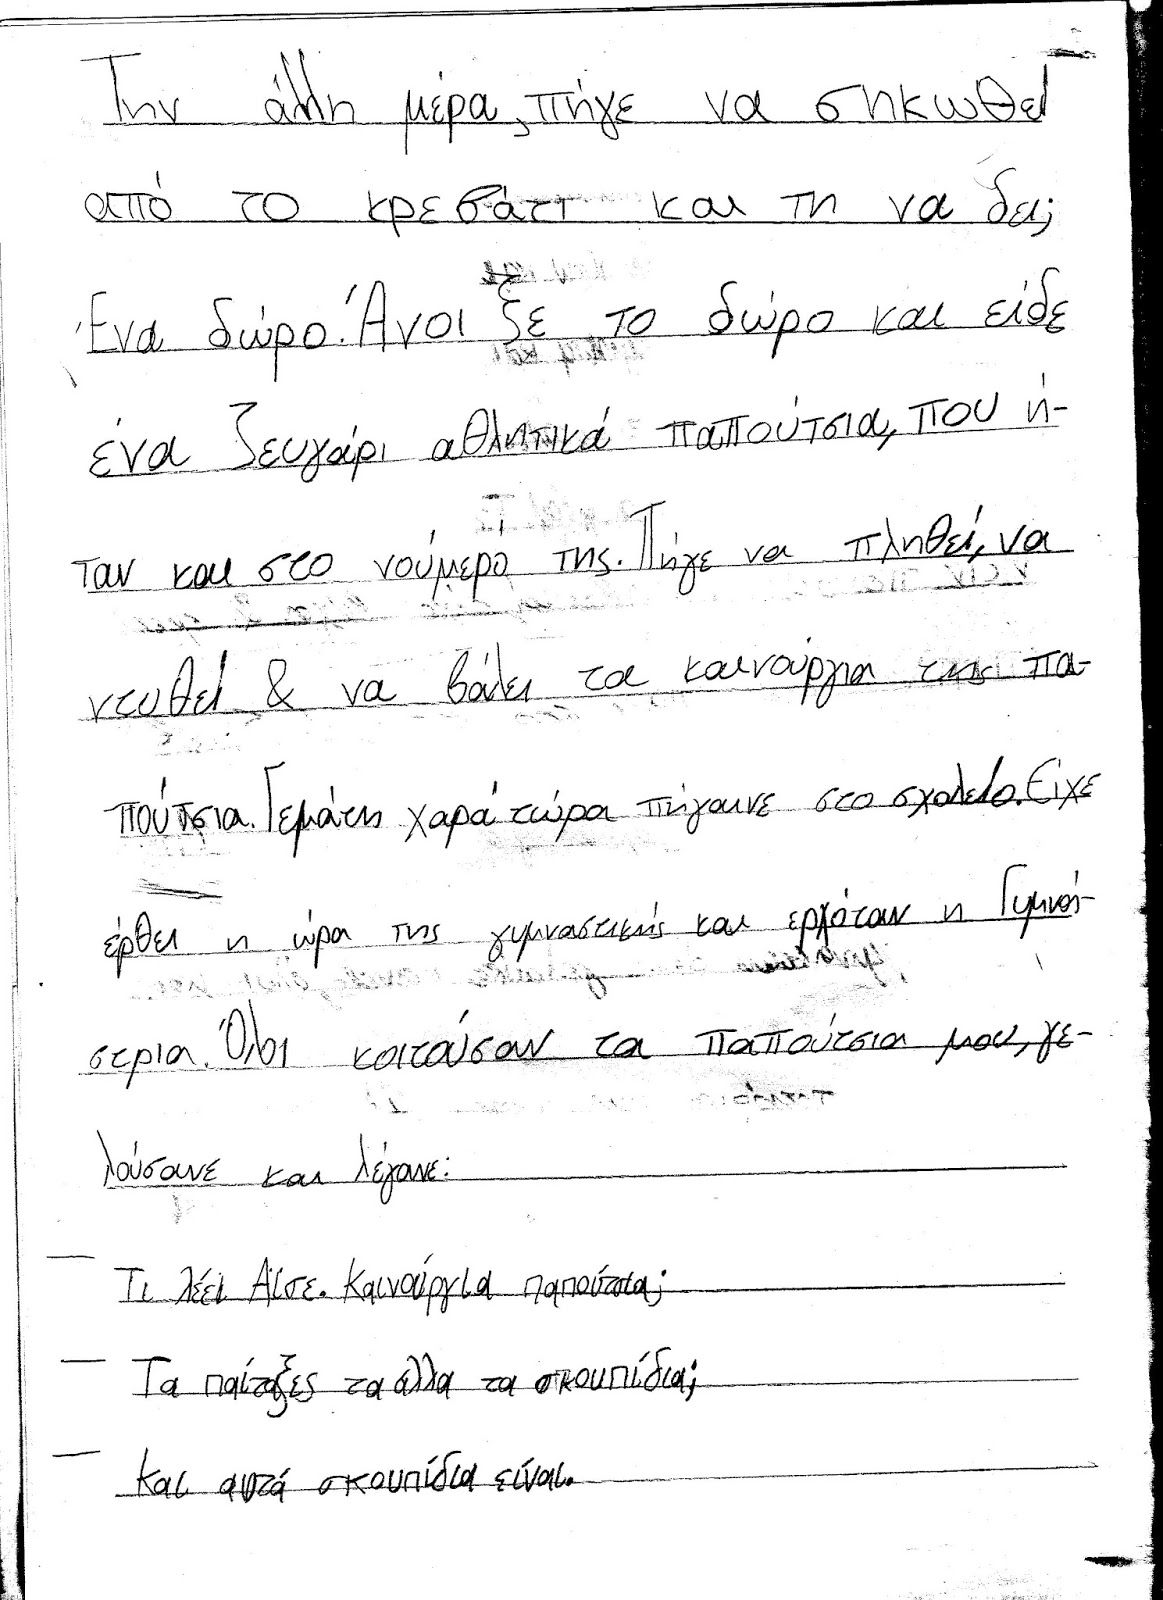 Την άλλη μέρα, πήγε να σηκωθεί
από το κρεβάτι και τη να δει;
Ένα δώρο. Άνοιξε το δώρο και είδε
ένα ζευγάρι αθλητικά παπούτσια, που ή-
ταν και στο νούμερό της. Πήγε να πληθεί, να
ντυθεί & να βάλει τα καινούργια της πα-
πούτσια. Γεμάτη χαρά τώρα πήγαινε στο σχολείο. Είχε
έρθει η ώρα της γυμναστικής και ερχόταν η Γυμνά-
στρια. Όλοι κοιτούσαν τα παπούτσια μου, γε-
λούσανε και λέγανε:
— Τι λέει Αϊσε. Καινούργια παπούτσια;
— Τα παίταξες τα άλλα τα σκουπίδια;
— Και αυτά σκουπίδια είναι.